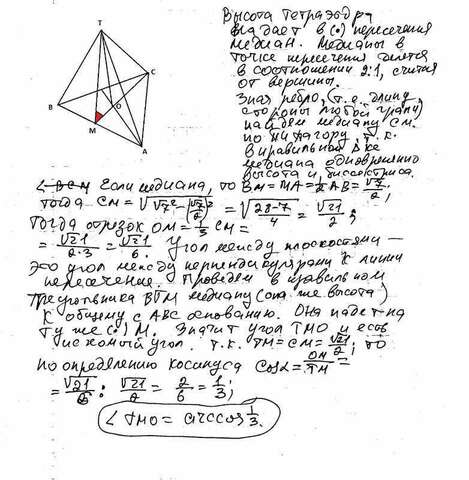 T
C
B
O
M
A
Высота тетраэдра
падает в (•) пересечения
медиан. Медианы в
точке пересечения делятся
в соотношении 2:1, считая
от вершины.
Зная ребро, (т.е. длину
стороны любой грани)
найдем медиану CM.
по Пифагору, т.к.
в правильном Δке
медиана одновременно
высота и биссектриса.
Если медиана, то BM = MA = ½AB = √7/2,
тогда CM = √(√7² - (√7/2)²) = √((28-7)/4) = √21/2;
Тогда отрезок OM = 1/3 CM =
= √21/(2·3) = √21/6. Угол между плоскостями —
это угол между перпендикулярами к линии
пересечения. Проведем в правильном
треугольнике BTM медиану (она же высота)
к общему с ABC основанию. Она падет на
ту же (•) M. Значит угол TMO и есть
искомый угол. т.к. TM = CM = √21/2; то
по определению косинуса cosα = OM/TM =
= √21/6 : √21/2 = 2/6 = 1/3;
∠TMO = arccos 1/3.